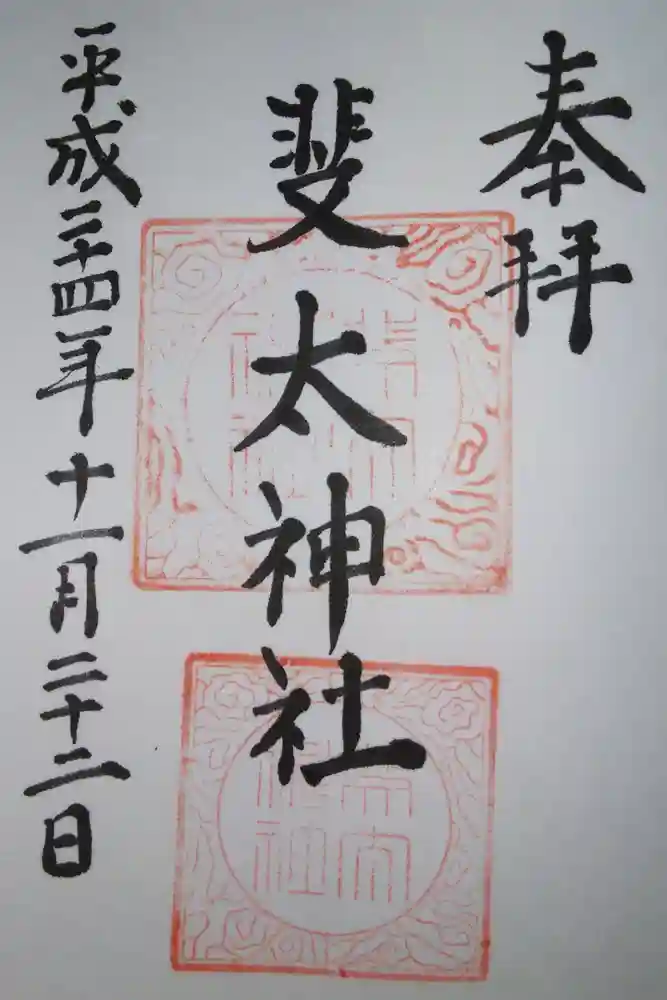 奉拝
斐太神社
平成二十四年十一月二十二日